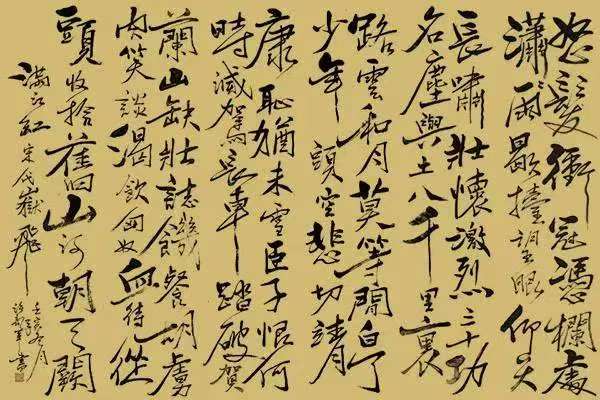 怒髮衝冠憑欄處
瀟雨歇擡望眼仰天
長嘯壯懷激烈三十功
名塵與土八千里裏
路雲和月莫等閒白了
少年頭空悲切靖
康恥猶未雪臣子恨何
時滅駕長車踏破賀
蘭山缺壯誌饑餐胡虜
肉笑談渴飲匈奴血待從
頭收拾舊山河朝天闕
滿江紅宋代嶽飛
月
書